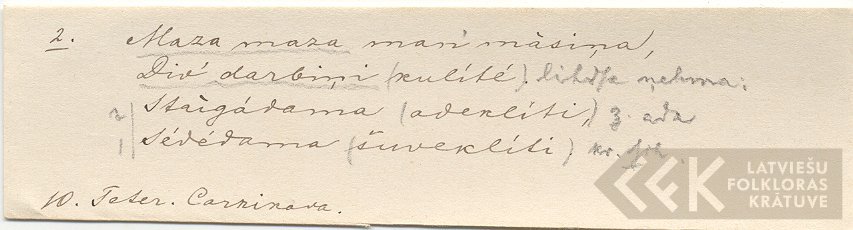 2. Maza maza man' māsiņa,
Div' darbiņi (kulītē) lihdse nehma:
2 Staigādama (adeklīti), z. ada
1 Sēdēdama (šuveklīti) kr.
10. Teter. Carnikava.
LATVIEŠU
FOLKLORAS
KRĀTUVE